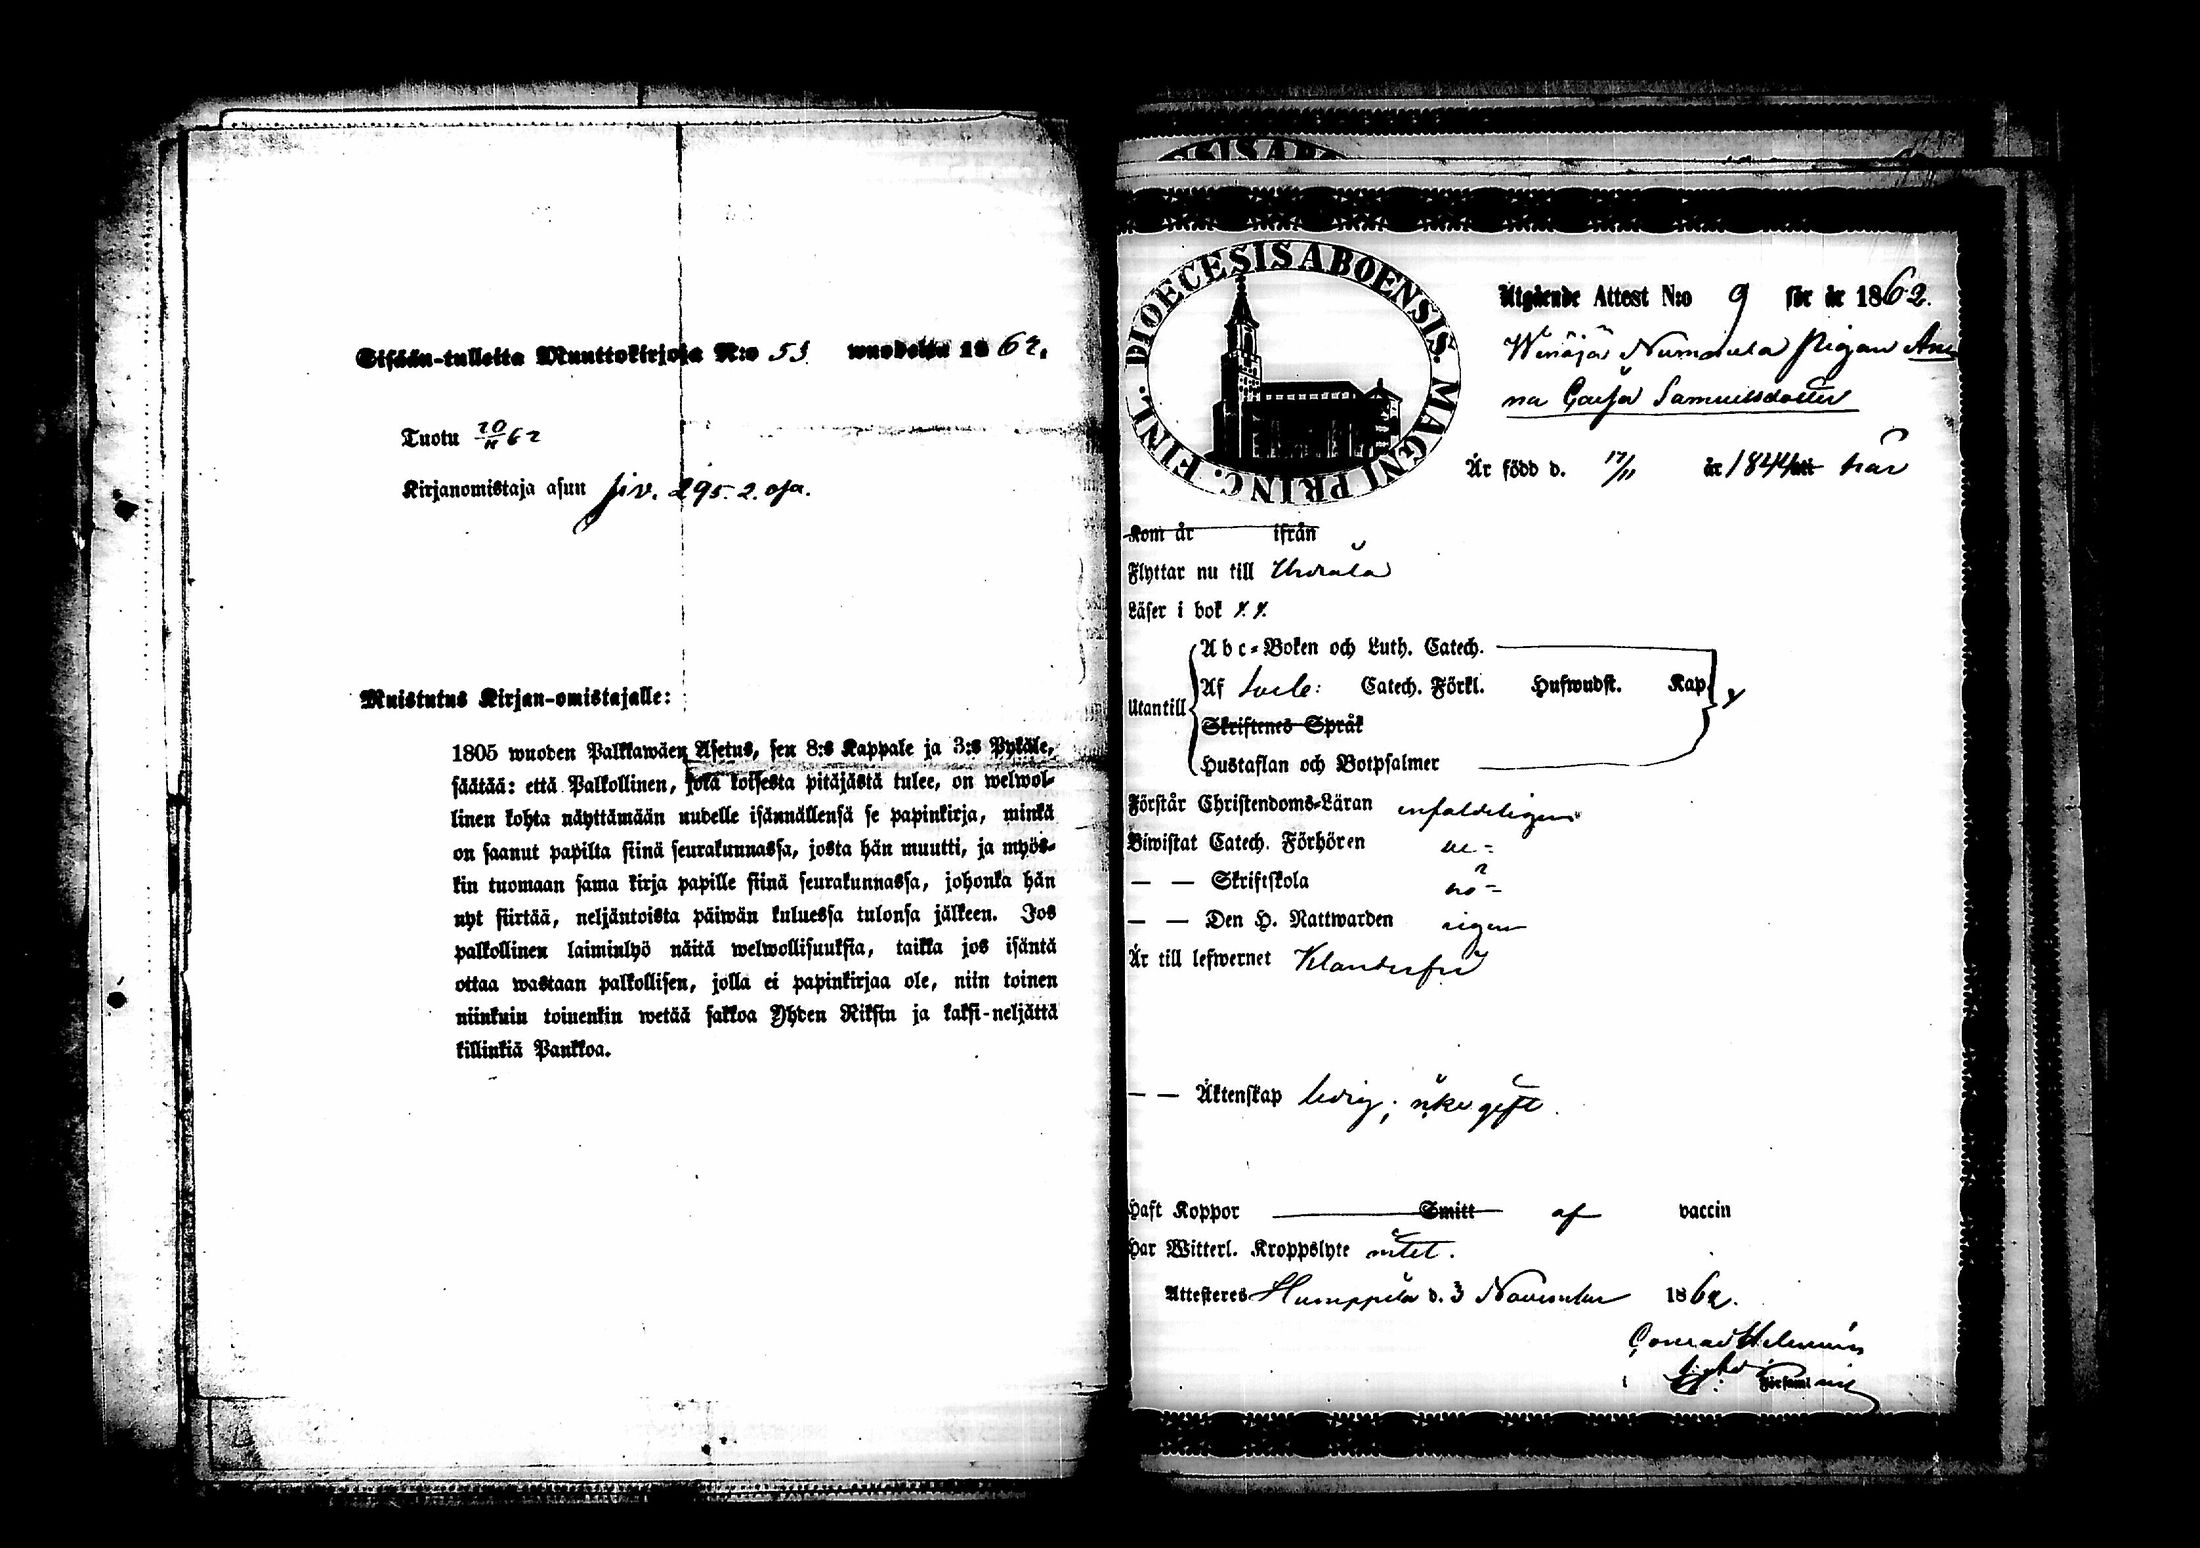 Sisään-tulleita Muuttokirjoja N:o 53 wuodelta 1862.
Tuotu 20/11 62
Kirjanomistaja asun siv. 295. 2. osa.
Muistutus Kirjan-omistajalle:
1805 wuoden Palkkawäen Asetus, sen 8:s Kappale ja 3:s Pykäle,
säätää: että Palkollinen, joka toisesta pitäjästä tulee, on welwol-
linen kohta näyttämään uudelle isännällensä se papinkirja, minkä
on saanut papilta siinä seurakunnassa, josta hän muutti, ja myös-
kin tuomaan sama kirja papille siinä seurakunnassa, johonka hän
nyt siirtää, neljäntoista päiwän kuluessa tulonsa jälkeen. Jos
palkollinen laiminlyö näitä welwollisuuksia, taikka jos isäntä
ottaa wastaan palkollisen, jolla ei papinkirjaa ole, niin toinen
niinkuin toinenkin wetää sakkoa Yhden Riksin ja kaksi-neljättä
killinkiä Pankkoa.
DIOECESIS ABOENSIS. MAGNI PRINC. FINL.
Utgående Attest N:o 9 för år 1862.
Wenäjä Nummela Pigan An
na Cajsa Samuelsdotter
Är född d. 17/11 år 1844 här
Kom år ifrån
Flyttar nu till Urdiala
Läser i bok
Abc-Boken och Luth. Catech.
Utantill
Af Sveb: Catech. Förkl. Hufwudst. Kap.
Skriftenes Språk
Hustaflan och Botpsalmer
Förstår Christendoms-Läran enfaldeligen
Biwistat Catech. Förhören
— — Skriftskola
— — Den H. Nattwarden
Är till lefwernet Klanderfri
— — Äktenskap ledig; icke gift.
Haft Koppor Smitt af vaccin
Har Witterl. Kroppslyte intet.
Attesteras Humppila d. 3 November 1862.
Conrad Helenius
i Församl